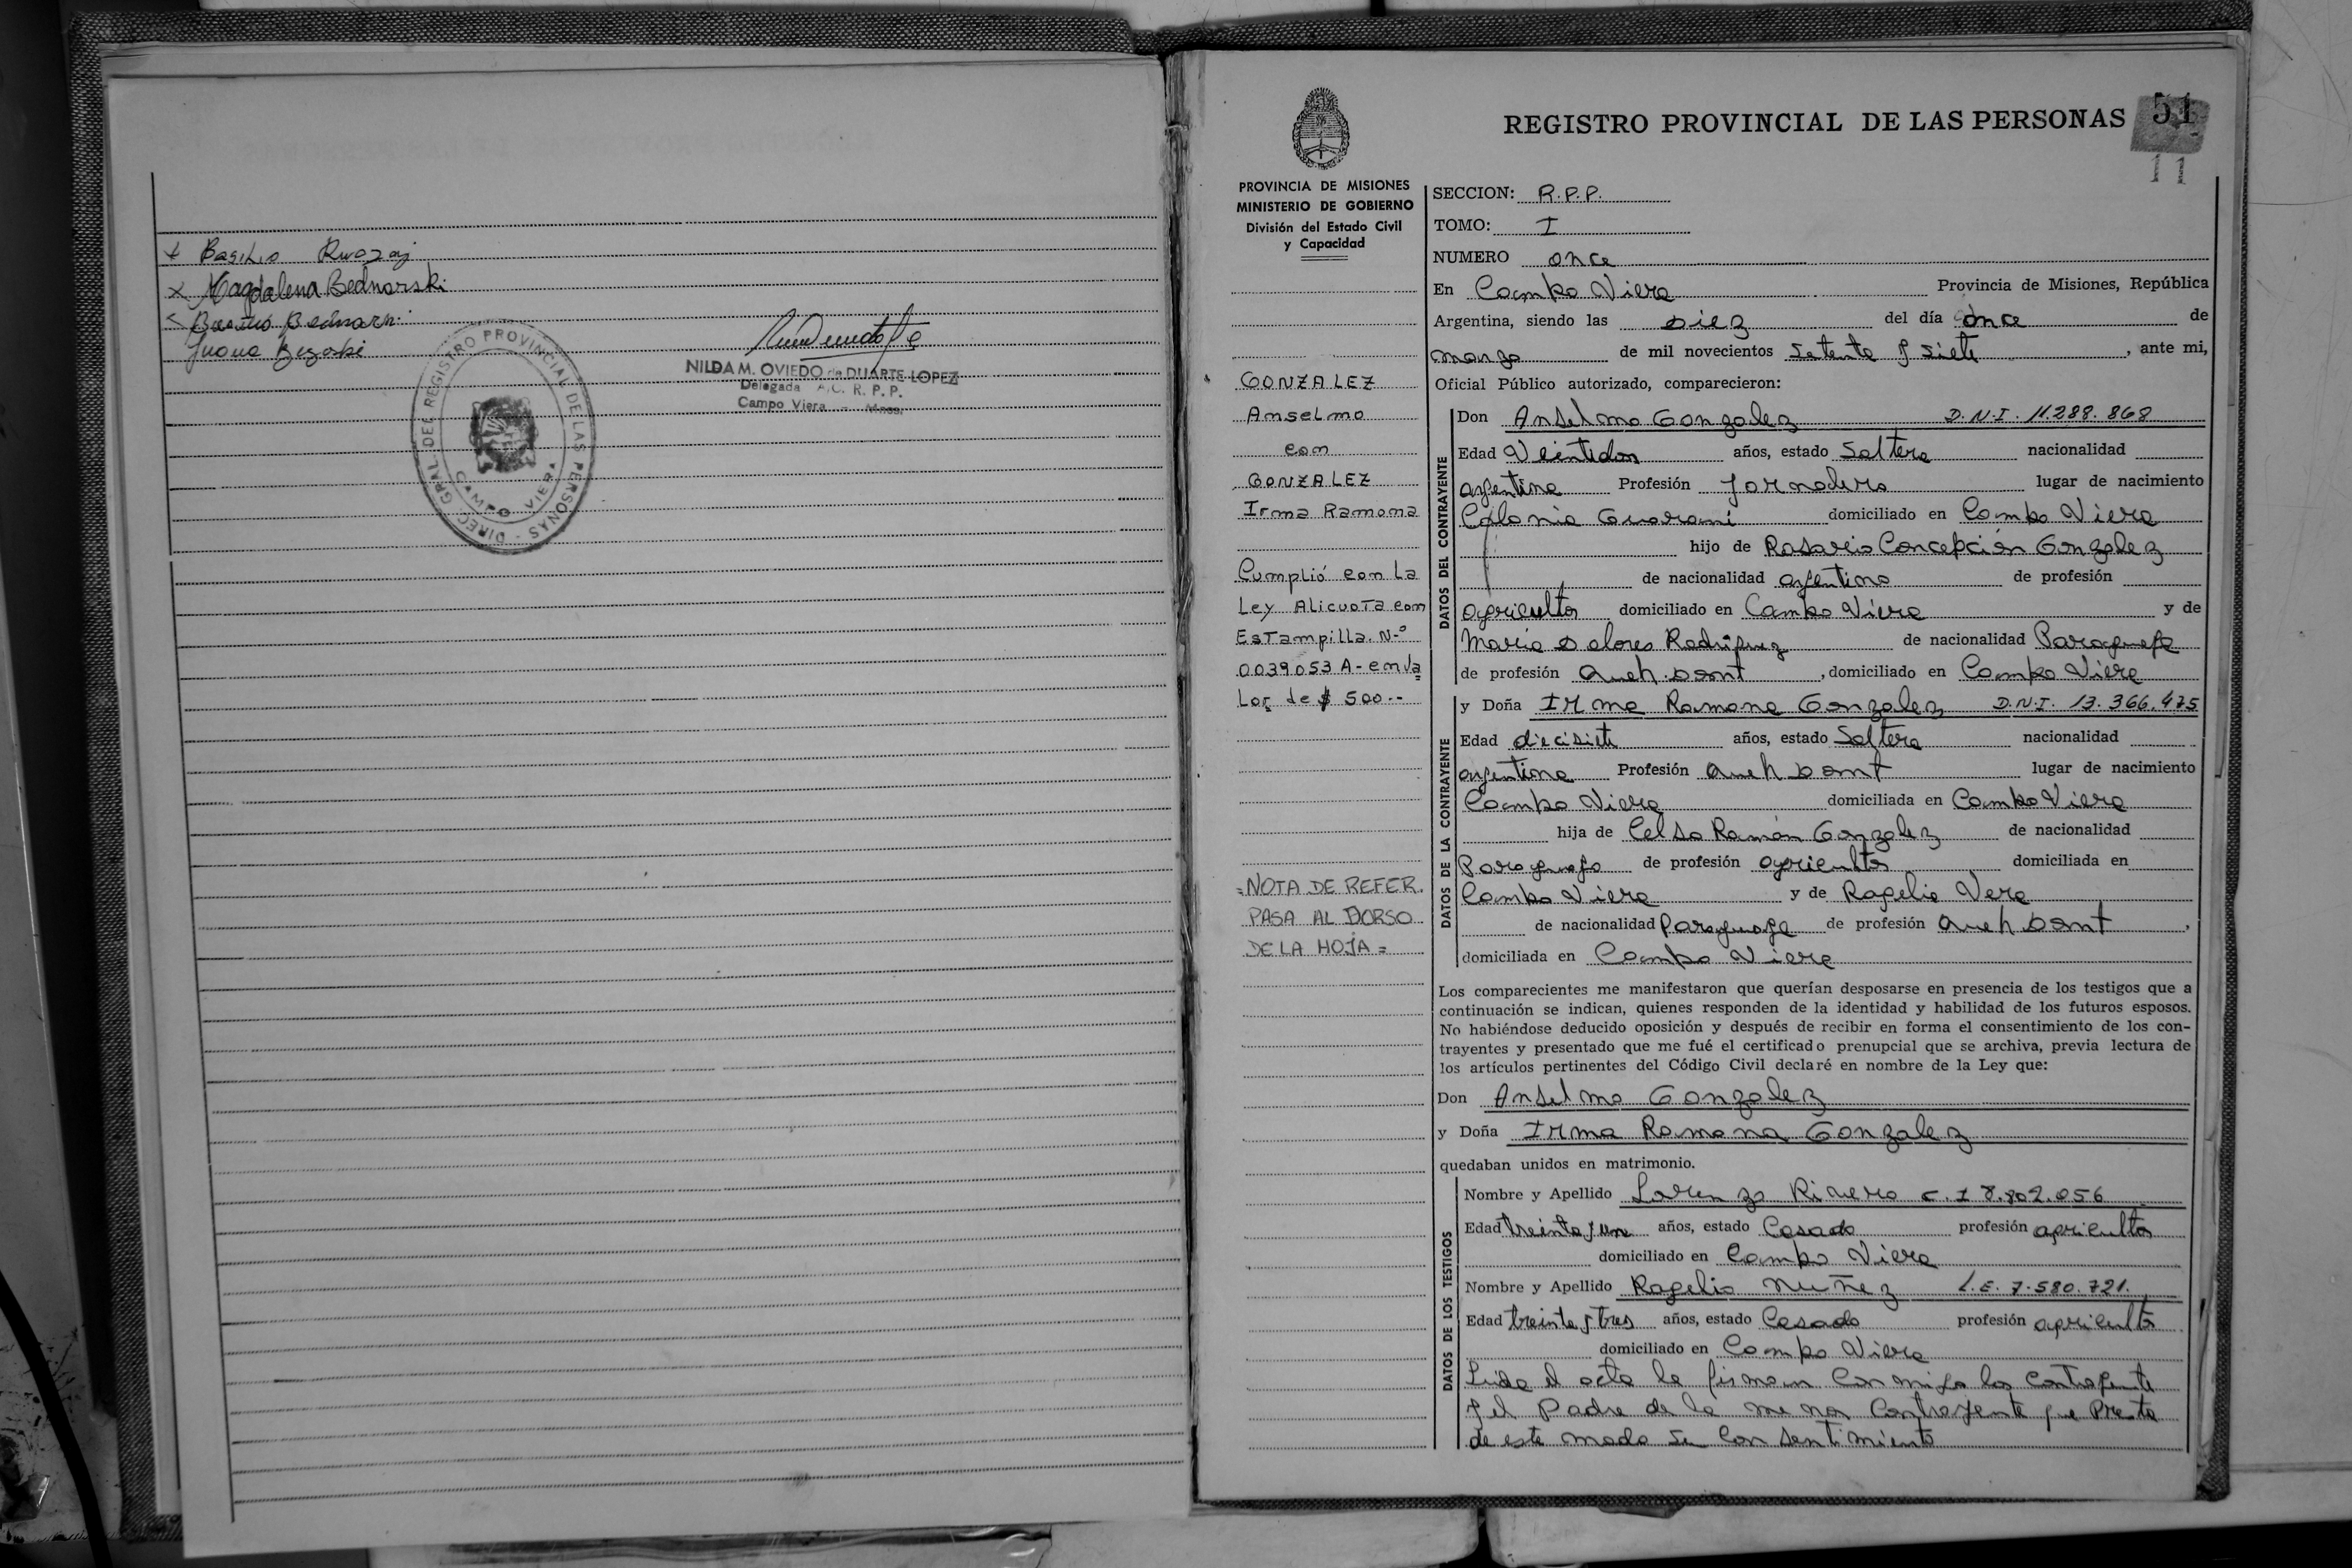 x Basilio Rwozaj
x Magdalena Bednarski
Basilio Bednarski
Juana Bezoski
DIREC. GRAL. DEL REGISTRO PROVINCIAL DE LAS PERSONAS -
CAMPO VIERA
NILDA M. OVIEDO de DUARTE LOPEZ
Delegada A/C. R. P. P.
Campo Viera - Mnes.
REGISTRO PROVINCIAL DE LAS PERSONAS
51
11
PROVINCIA DE MISIONES
MINISTERIO DE GOBIERNO
División del Estado Civil
y Capacidad
GONZALEZ
Anselmo
con
GONZALEZ
Irma Ramona
Cumplió con La
Ley Alicuota con
Estampilla. N.º
0039053 A- en Va
Lor de $ 500.--
=NOTA DE REFER.
PASA AL DORSO
DE LA HOJA=
SECCION: R.P.P.
TOMO: I
NUMERO once
En Campo Viera Provincia de Misiones, República
Argentina, siendo las diez del día once de
marzo de mil novecientos setenta y siete, ante mi,
Oficial Público autorizado, comparecieron:
DATOS DEL CONTRAYENTE
Don Anselmo Gonzalez D.N.I. 11.288.868
Edad Veintidos años, estado Soltero nacionalidad
argentina Profesión Jornalero lugar de nacimiento
Colonia Guarani domiciliado en Campo Viera
hijo de Rosario Concepción Gonzalez
de nacionalidad argentino de profesión
agricultor domiciliado en Campo Viera y de
Maria Dolores Rodriguez de nacionalidad Paraguaya
de profesión Queh. Domt, domiciliado en Campo Viera
DATOS DE LA CONTRAYENTE
y Doña Irma Ramona Gonzalez D.N.I. 13.366.475
Edad diecisiete años, estado Soltera nacionalidad
argentina Profesión Queh Domt lugar de nacimiento
Campo Viera domiciliada en Campo Viera
hija de Celso Ramón Gonzalez de nacionalidad
Paraguayo de profesión agricultor domiciliada en
Campo Viera y de Rogelia Vera
de nacionalidad Paraguaya de profesión Queh Domt,
domiciliada en Campo Viera
Los comparecientes me manifestaron que querían desposarse en presencia de los testigos que a
continuación se indican, quienes responden de la identidad y habilidad de los futuros esposos.
No habiéndose deducido oposición y después de recibir en forma el consentimiento de los con-
trayentes y presentado que me fué el certificado prenupcial que se archiva, previa lectura de
los artículos pertinentes del Código Civil declaré en nombre de la Ley que:
Don Anselmo Gonzalez
y Doña Irma Ramona Gonzalez
quedaban unidos en matrimonio.
DATOS DE LOS TESTIGOS
Nombre y Apellido Lorenzo Rivero C.I 8.802.056
Edad treinta y un años, estado Casado profesión agricultor
domiciliado en Campo Viera
Nombre y Apellido Rogelio Nuñez L.E. 7.580.721.
Edad treinta y tres años, estado Casado profesión agricultor
domiciliado en Campo Viera
Leida el acta la firman conmigo los contrayente
y el Padre de la menor Contrayente que Presta
de este modo su consentimiento